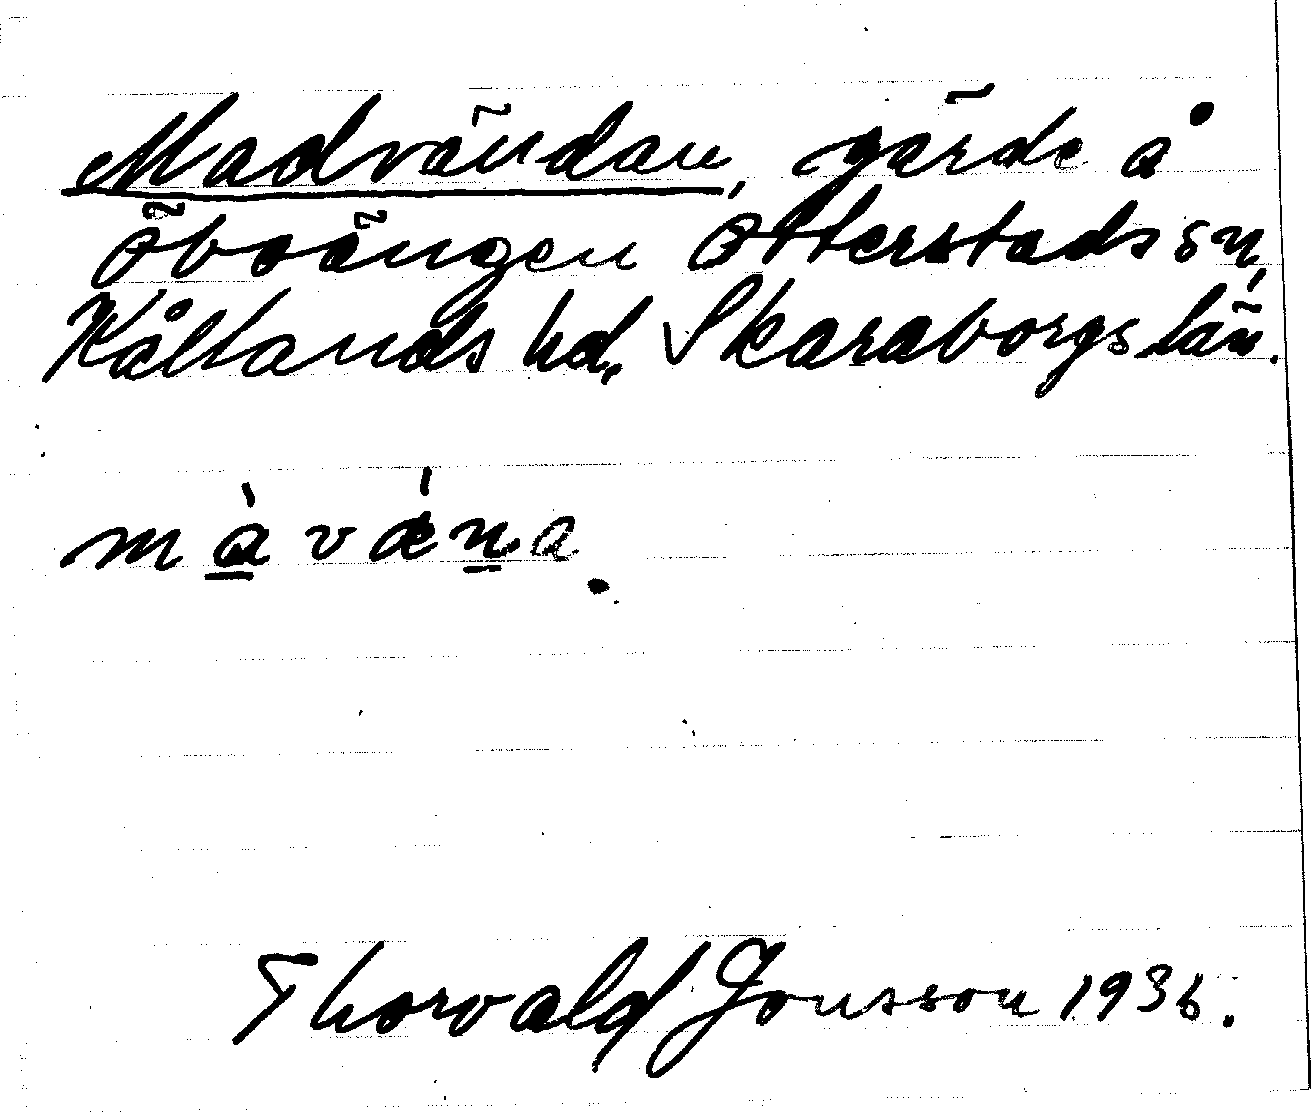 Madvändan, gärde å
Öboängen Otterstads sn,
Kållands hd, Skaraborgs län.
màvǽna.
Thorvald Jonsson 1936.